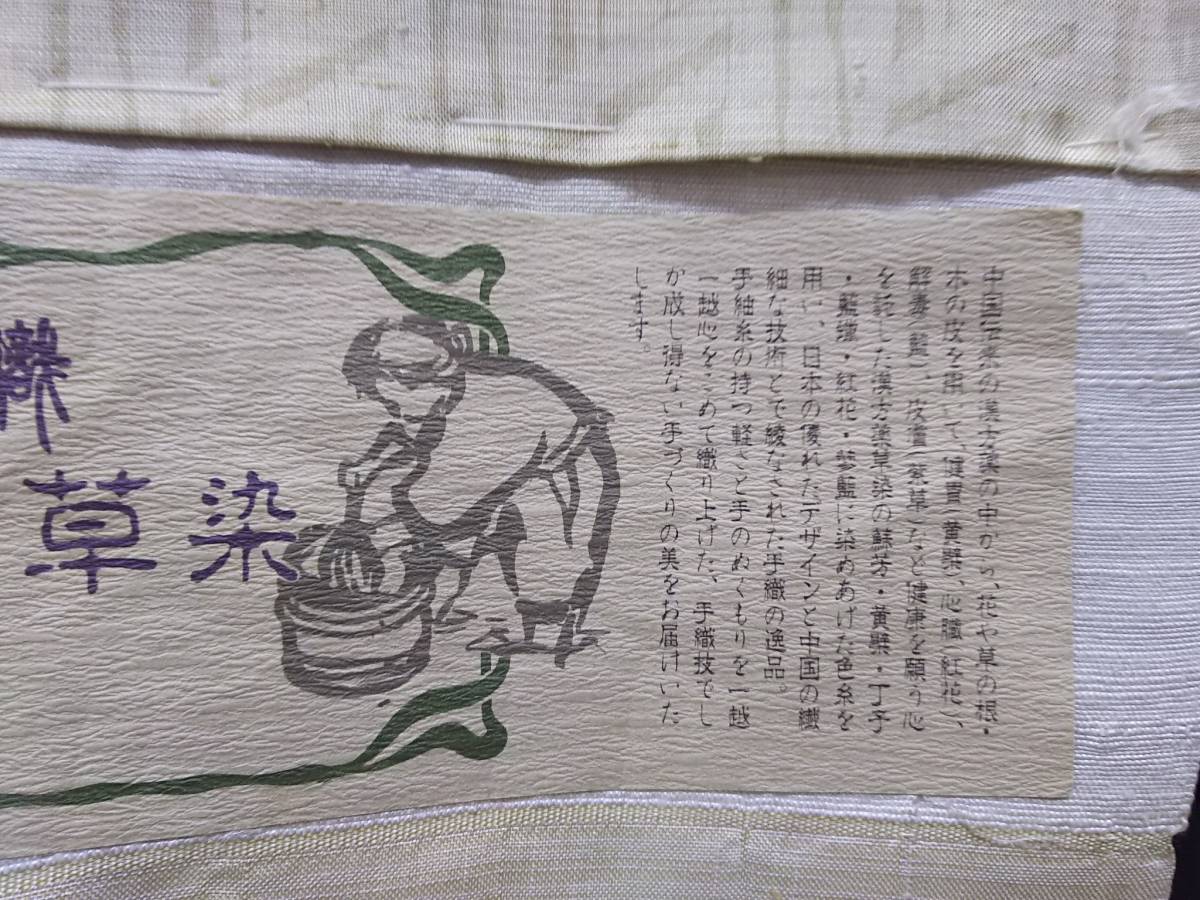 中国伝来の漢方薬の中から、花や草の根・
木の皮を用いて、健胃(黄檗)、心臓(紅花)、
解毒(藍)、皮膚(茶草)など健康を願う心
を託した漢方薬草染の蘇芳・黄檗・丁子
・藍・紅花・蓼藍に染めあげた色糸を
用い、日本の優れたデザインと中国の繊
細な技術とで綾なされた手織の逸品。
手紬糸の持つ軽さと手のぬくもりを一越
一越心をこめて織り上げた、手織技でし
か成し得ない手づくりの美をお届けいた
します。
草染